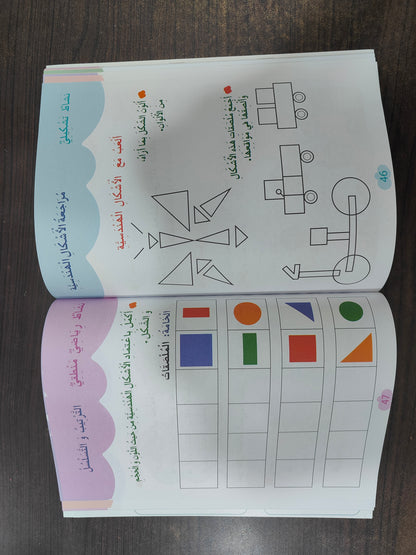 نشاط تشكيلي
مراجعة الأشكال الهندسية
ألعب مع الأشكال الهندسية
ألون الشكل بما أراه
من الألوان.
أجمع ملصقات هذه الأشكال
وألصقها في مواقعها.
46
نشاط رياضي منطقي
الترتيب و التسلسل
أكمل باعتماد الأشكال الهندسية من حيث اللون و الحجم
و الشكل.
الخامة: الملصقات
47